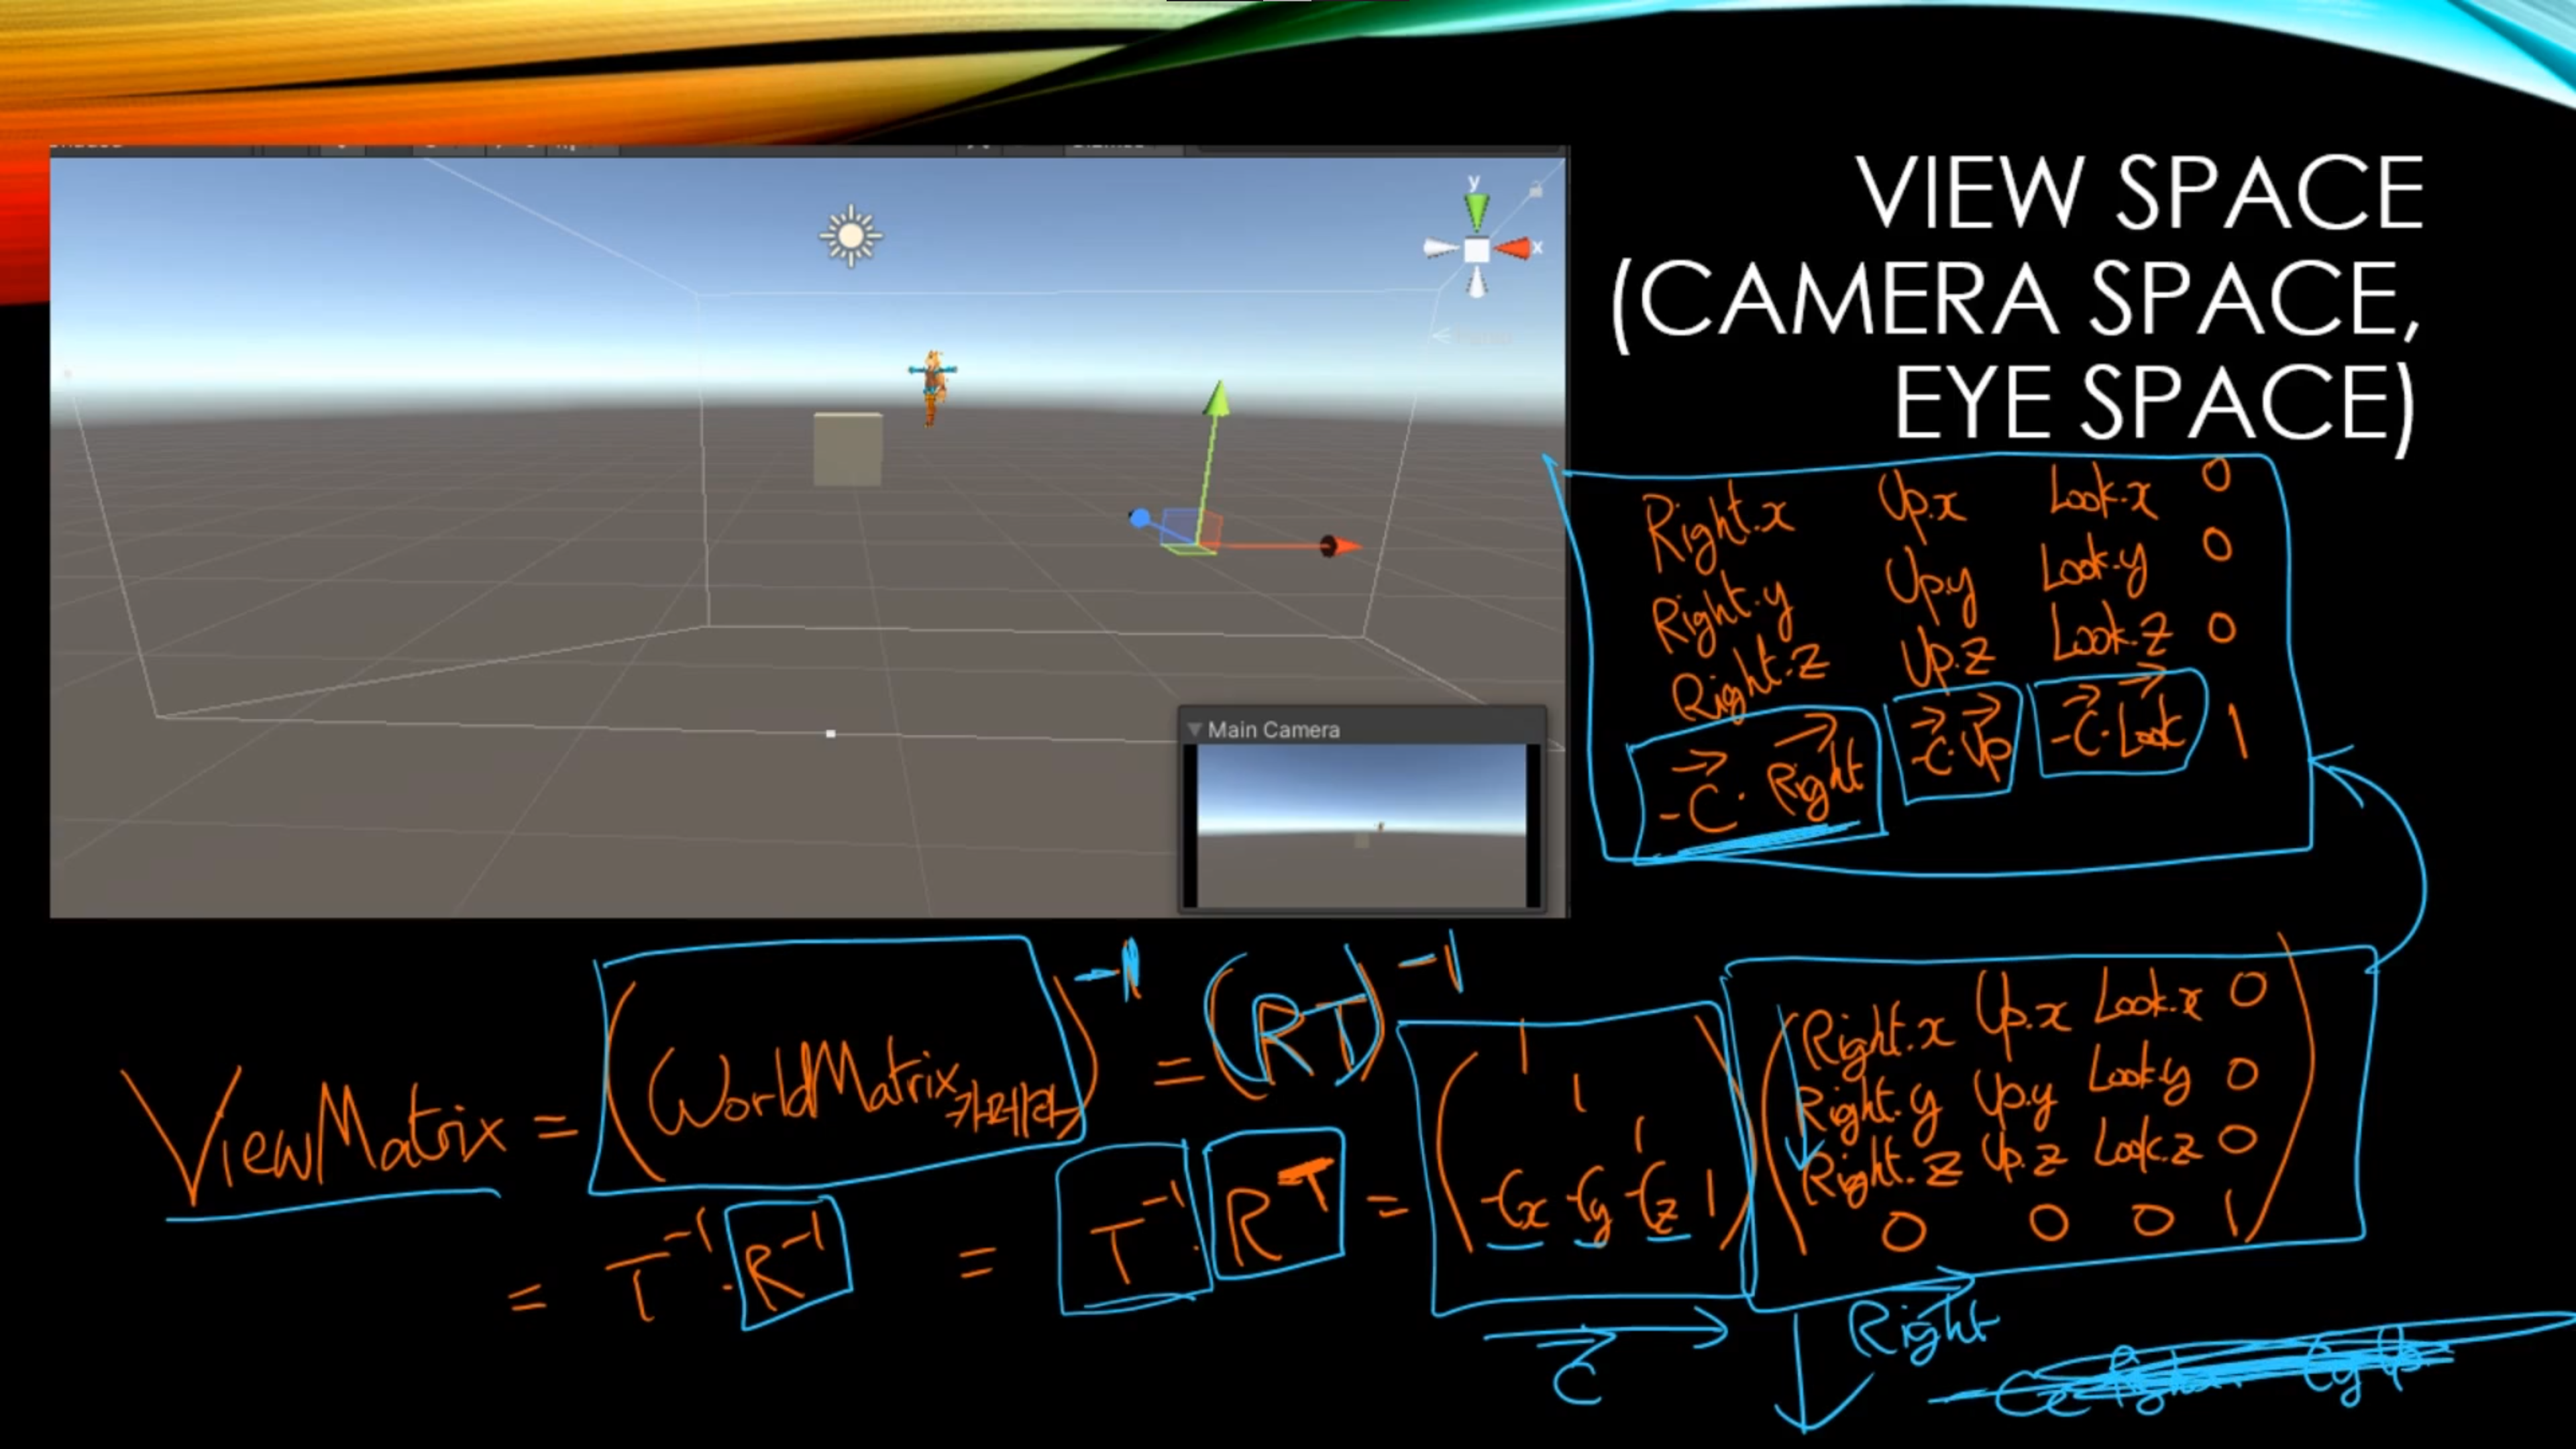 VIEW SPACE
(CAMERA SPACE,
EYE SPACE)
y
x
Main Camera
Right.x Up.x Look.x 0
Right.y Up.y Look.y 0
Right.z Up.z Look.z 0
-C·Right -C·Up -C·Look 1
ViewMatrix = (WorldMatrix카메라)⁻¹ = (RT)⁻¹
= T⁻¹·R⁻¹ = T⁻¹·Rᵀ =
1
1
1
-Cx -Cy -Cz 1
Right.x Up.x Look.x 0
Right.y Up.y Look.y 0
Right.z Up.z Look.z 0
0 0 0 1
C
Right